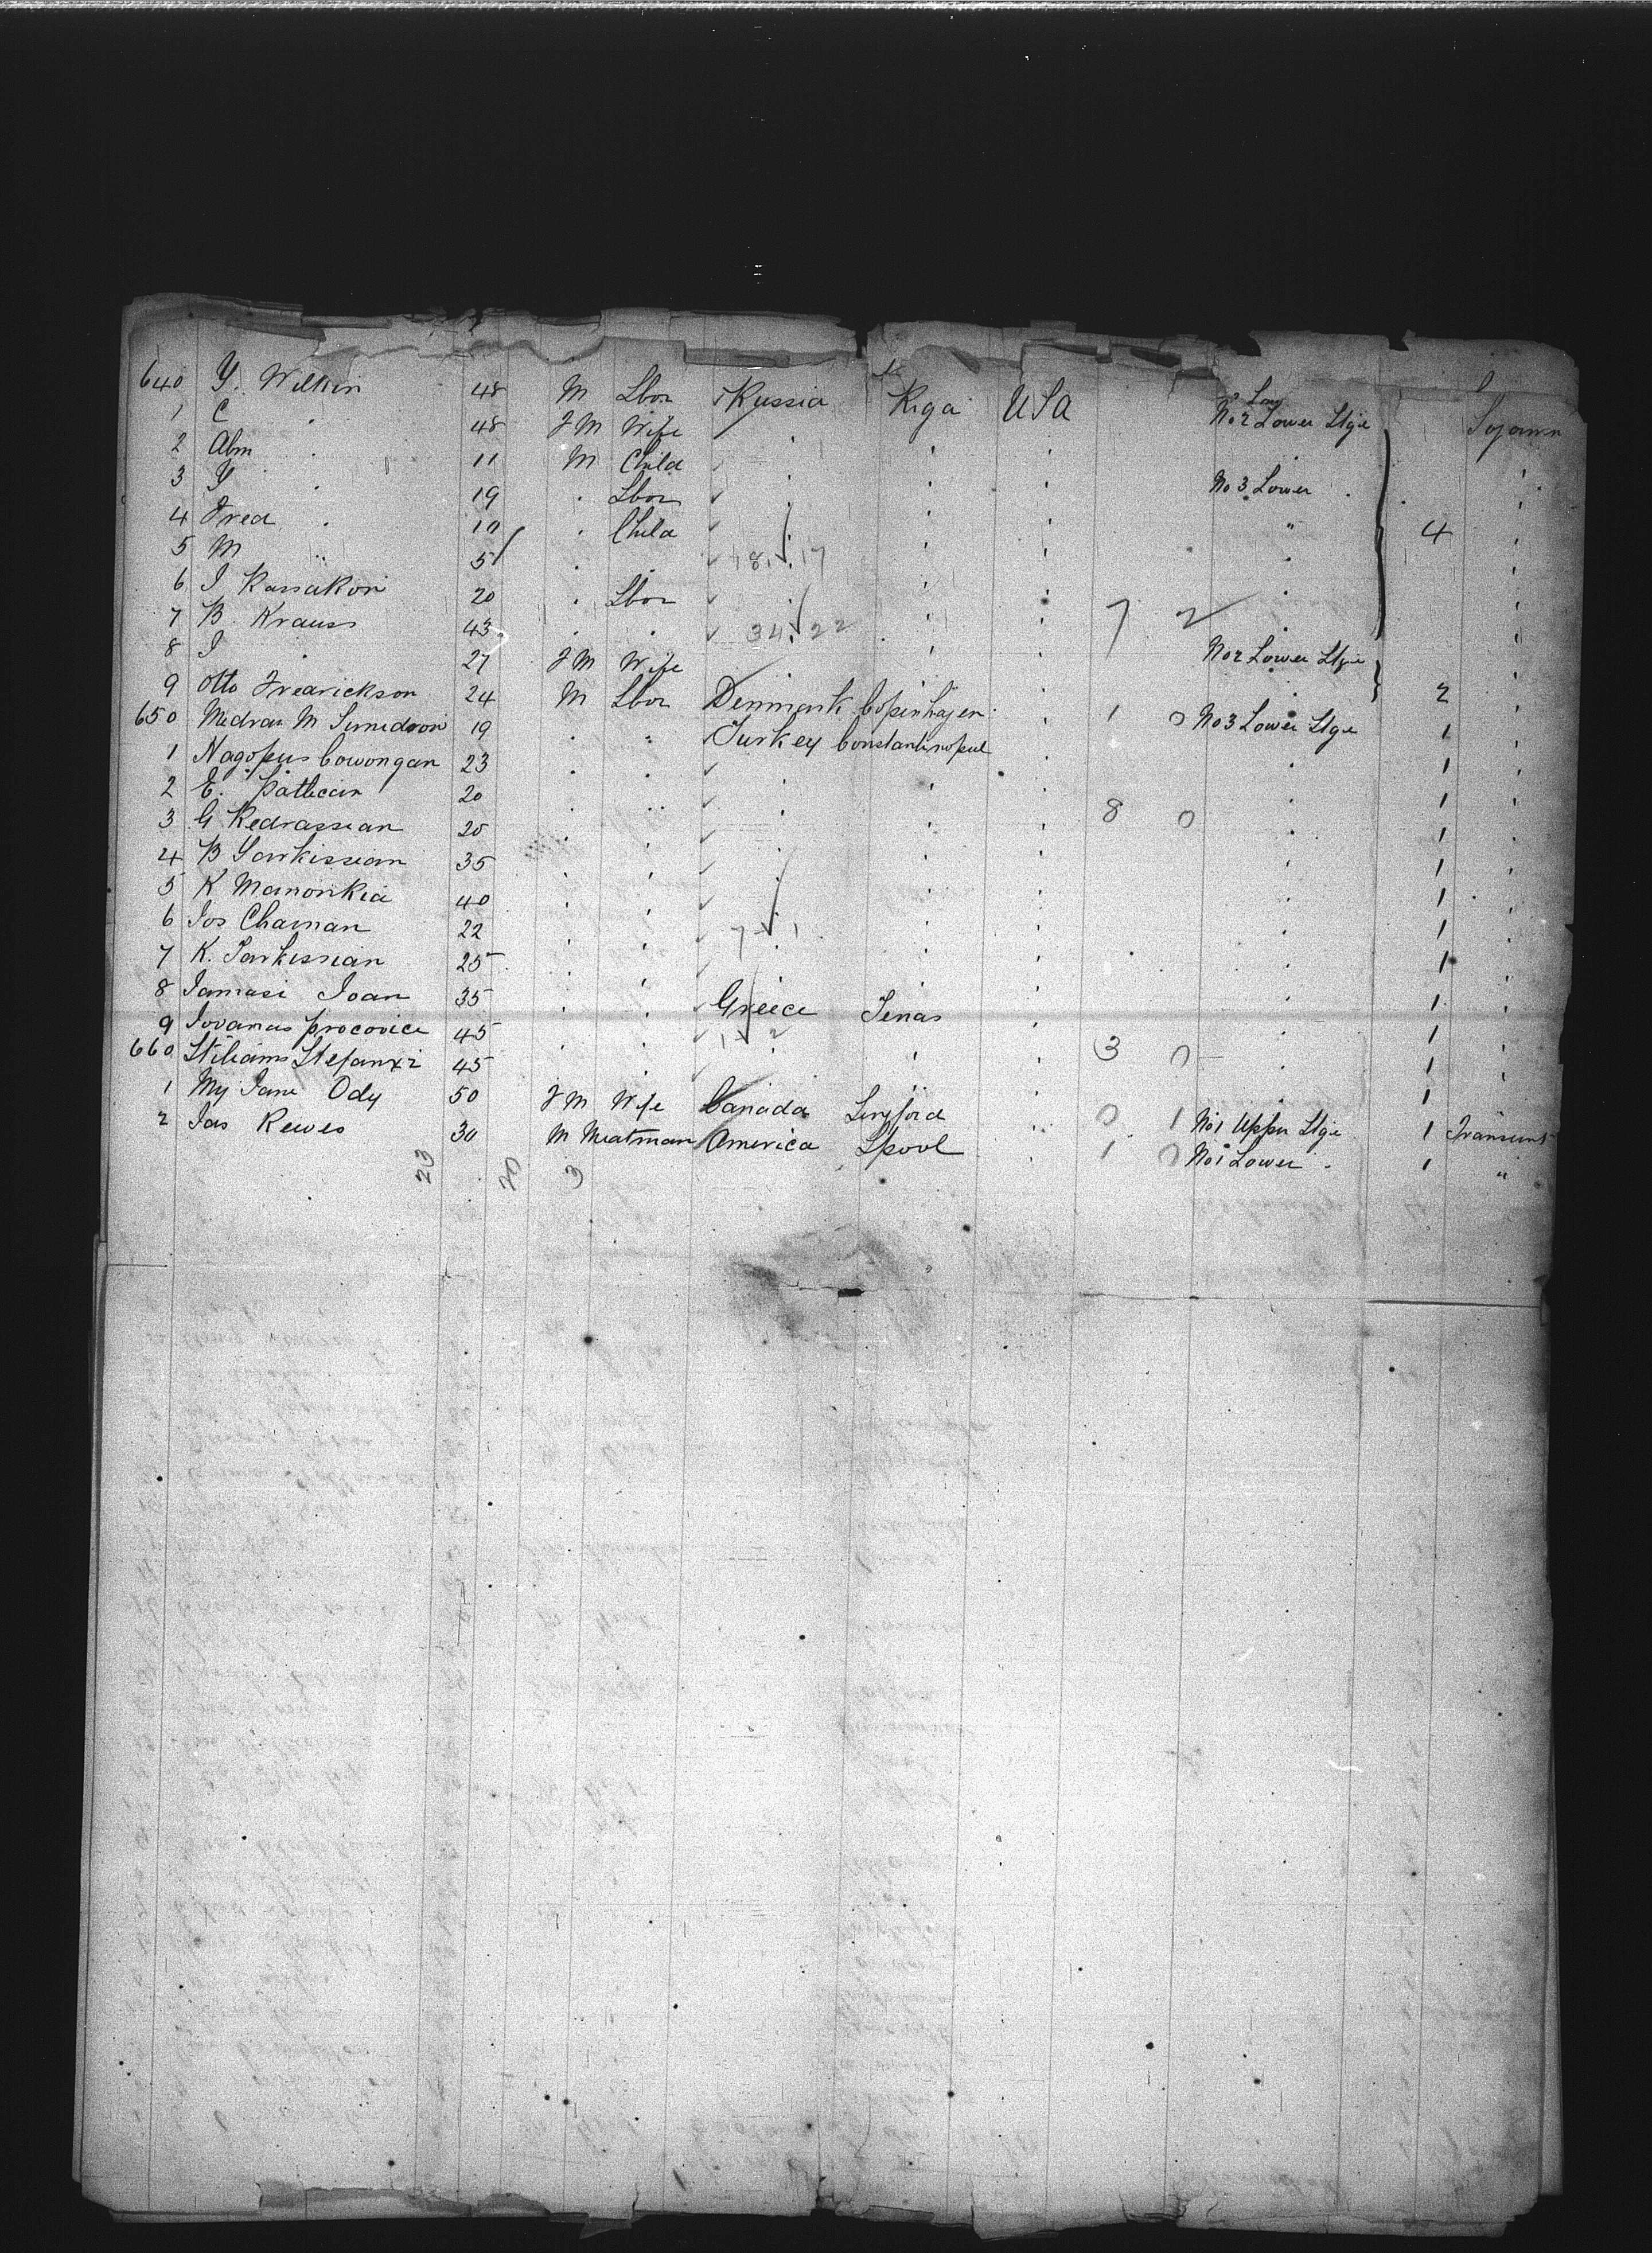 640 Y. Wilkin 48 M Lbor Russia Riga USA No 2 Lower Stge Sojourn
1 C " 48 F M Wife " " "
2 Abm " 11 M Child " " "
3 Y " 19 " Lbor " " " No 3 Lower "
4 Fred " 10 " Child " " " " 4
5 M " 5 " " " 18 17 " " "
6 I Kassakow 20 " Lbor " " " "
7 B. Krauss 43 " " 34 22 " " 7 2 "
8 I " 27 F M Wife " " No 2 Lower Stge
9 Otto Fredrickson 24 M Lbor Denmark Copenhagen " 1 0 " 2
650 Medrau M 19 " " Turkey Constantinopel " No 3 Lower Stge 1
1 Nagopus Cowongan 23 " " " " " 1
2 E. Patlican 20 " " " " " 8 0 " 1
3 G Kedrassian 25 " " " " " 1
4 B Sarkissian 35 " " " " " 1
5 K Manonkia 40 " " " " " 1
6 Jos Chaman 22 " " 7 1 " " " 1
7 K. Sarkissian 25 " " " " " 1
8 Jamasi Joan 35 " " Greece Tenas " " 1
9 Jovanus Procovice 45 " " 1 2 " " 3 0 " 1
660 Stilianis 45 " " " " " 1
1 My Jane Ody 50 F M Wife Canada " 0 1 No 1 Upper Stge 1 Transient
2 Jas Reeves 30 M Meatman America Lpool " 1 0 No 1 Lower " 1 "
23 20 3